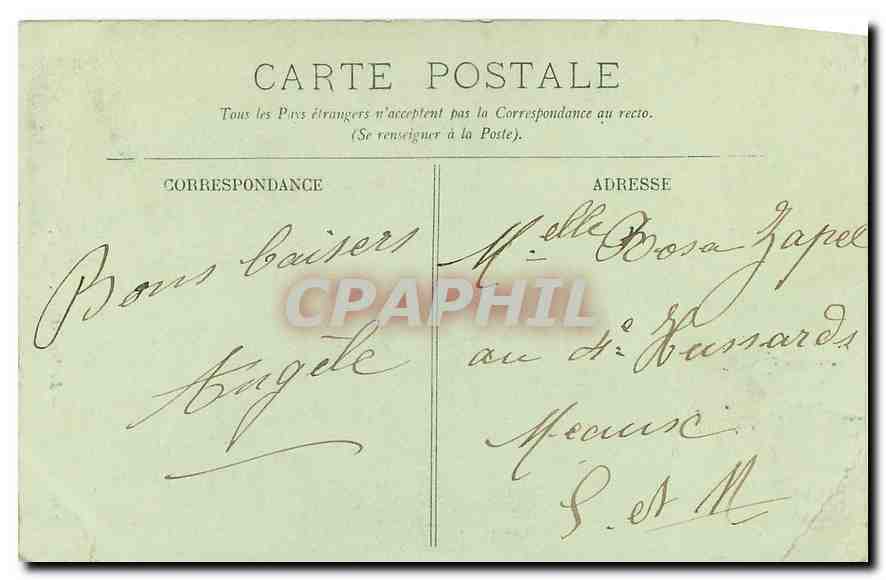 CARTE POSTALE
Tous les Pays étrangers n'acceptent pas la Correspondance au recto.
(Se renseigner à la Poste).
CORRESPONDANCE
ADRESSE
Bons baisers
Angèle
Melle Rosa Zapel
au 4e Hussards
Meaux
S. et M
CPAPHIL